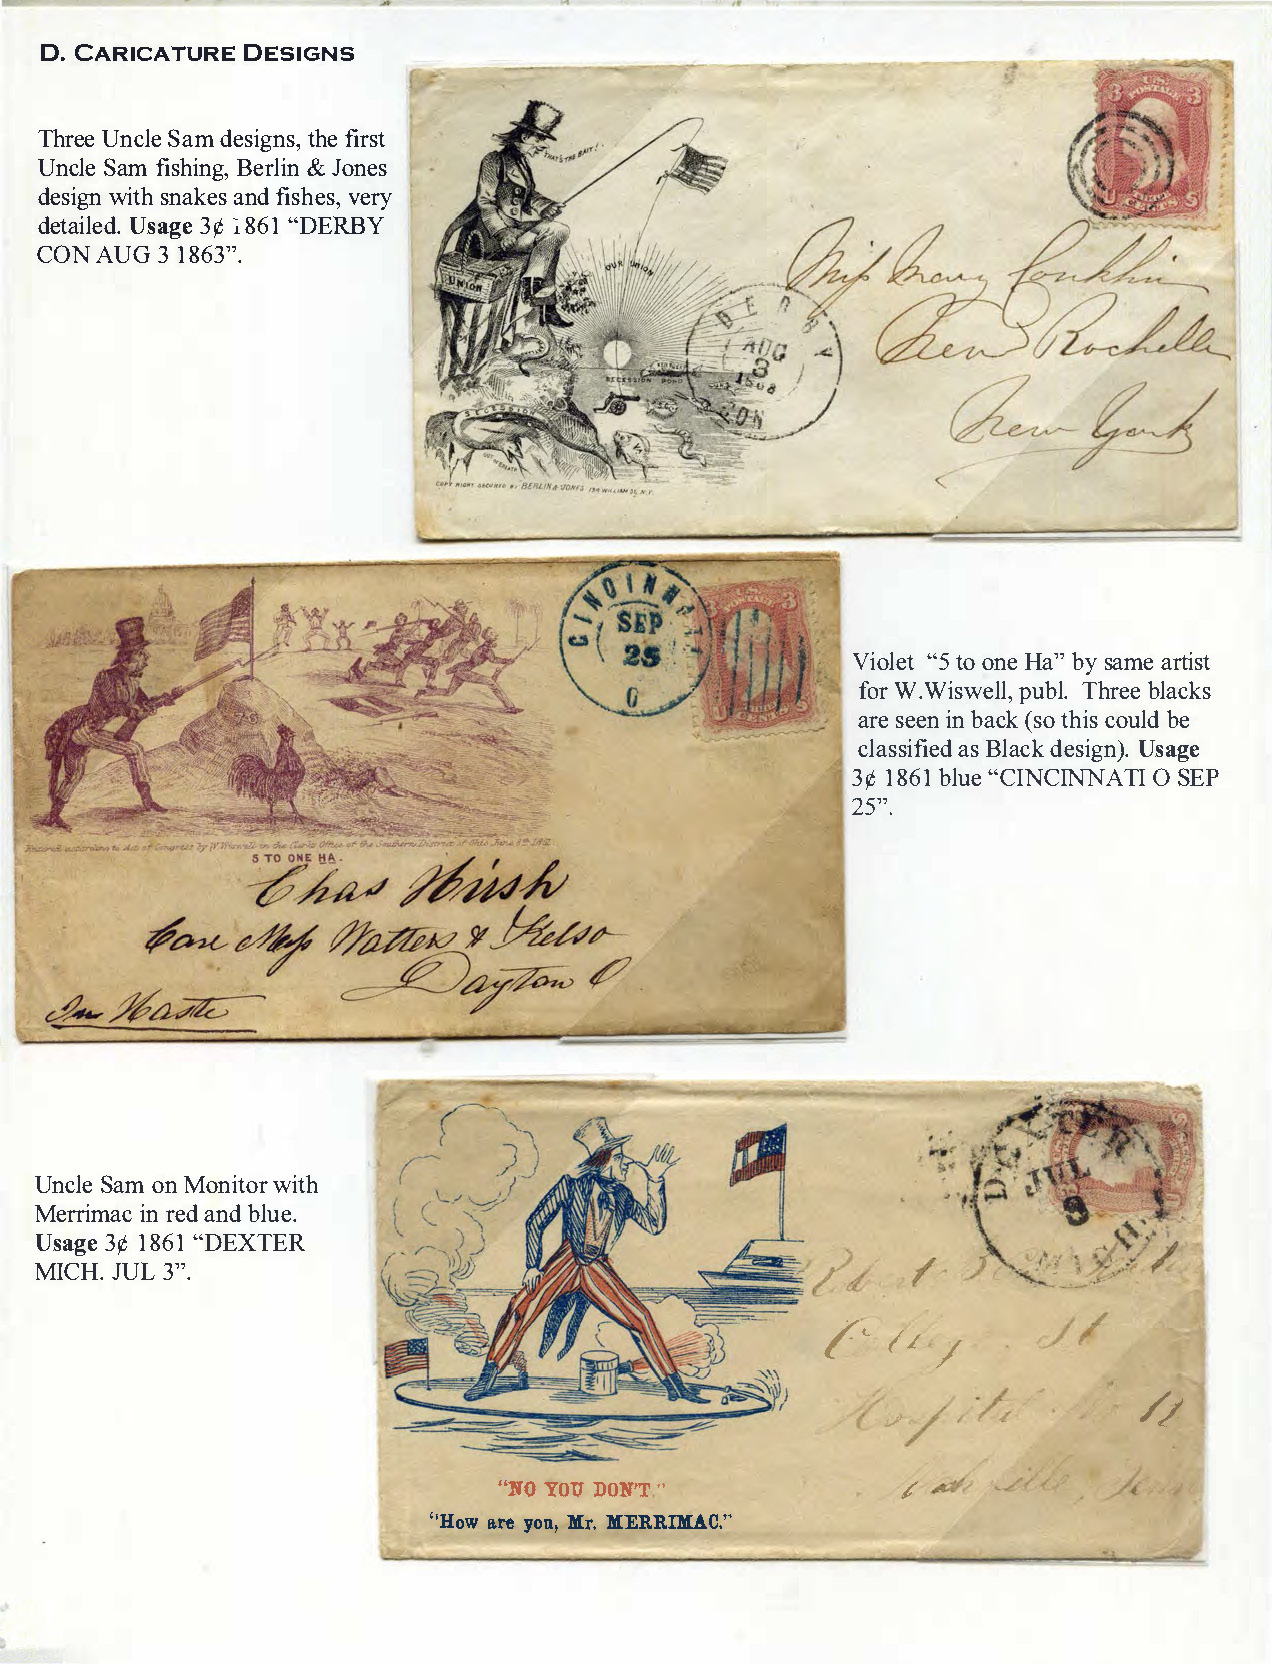 D. CARICATURE DESIGNS
Three Uncle Sam designs, the first
Uncle Sam fishing, Berlin & Jones
design with snakes and fishes, very
detailed. Usage 3¢ 1861 “DERBY
CON AUG 3 1863”.
THAT'S THE BAIT!
UNION
OUR UNION
SECESSION POND
SECESSION
OUT OF BREATH
COPY RIGHT SECURED BY BERLIN & JONES 134 WILLIAM ST. N.Y.
DERBY
AUG
3
CON
3 U.S. POSTAGE 3
U CENTS S
Miss Mary Conklin
New Rochelle
New York
76
Entered according to Act of Congress by W. Wiswell in the Clerks Office of the Southern District of Ohio June 8th
5 TO ONE HA.
CINCINNATI
SEP
25
O
U.S. POSTAGE 3
U CENTS S
Chas Hirsh
Care Mess Watters & Kelso
Dayton O
In Haste
Violet “5 to one Ha” by same artist
for W.Wiswell, publ. Three blacks
are seen in back (so this could be
classified as Black design). Usage
3¢ 1861 blue “CINCINNATI O SEP
25”.
Uncle Sam on Monitor with
Merrimac in red and blue.
Usage 3¢ 1861 “DEXTER
MICH. JUL 3”.
DEXTER
JUL
3
MICH.
Robert
St
Hospital No 12
Nashville, Tenn
“NO YOU DON'T.”
“How are you, Mr. MERRIMAC.”